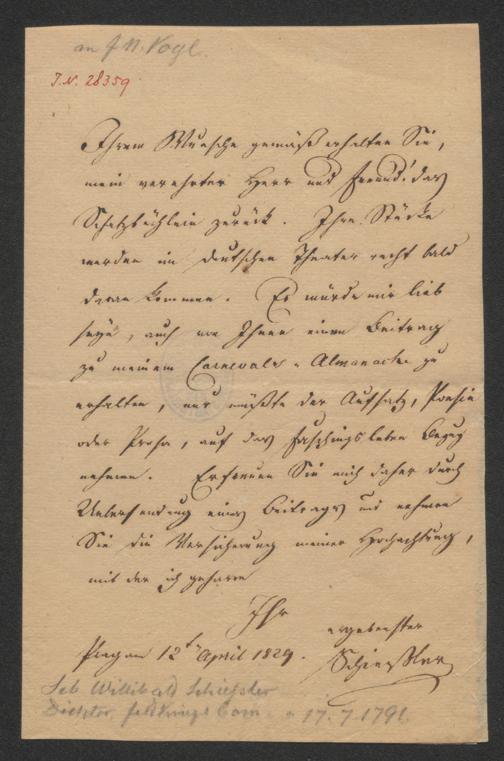 an J. N. Vogl.
J.N. 28359
Ihrem Wunsche gemäß erhalten Sie,
mein verehrter Herr und Freund! das
Schatzkästlein zurück. Ihre Stücke
werden im deutschen Theater recht bald
daran kommen. Es würde mir lieb
seyn, auch von Ihnen einen Beitrag
zu meinem Carnevals-Almanache zu
erhalten, nur müßte der Aufsatz, Poesie
oder Prosa, auf das Faschingsleben Bezug
nehmen. Erfreuen Sie mich daher durch
Uebersendung eines Beitrags und nehmen
Sie die Versicherung meiner Hochachtung,
mit der ich geharre
Ihr
ergebenster
Prag am 12t April 1829. Schiessler
Seb. Willibald Schiessler
Dichter, feldkriegs Com. 17.7.1791.